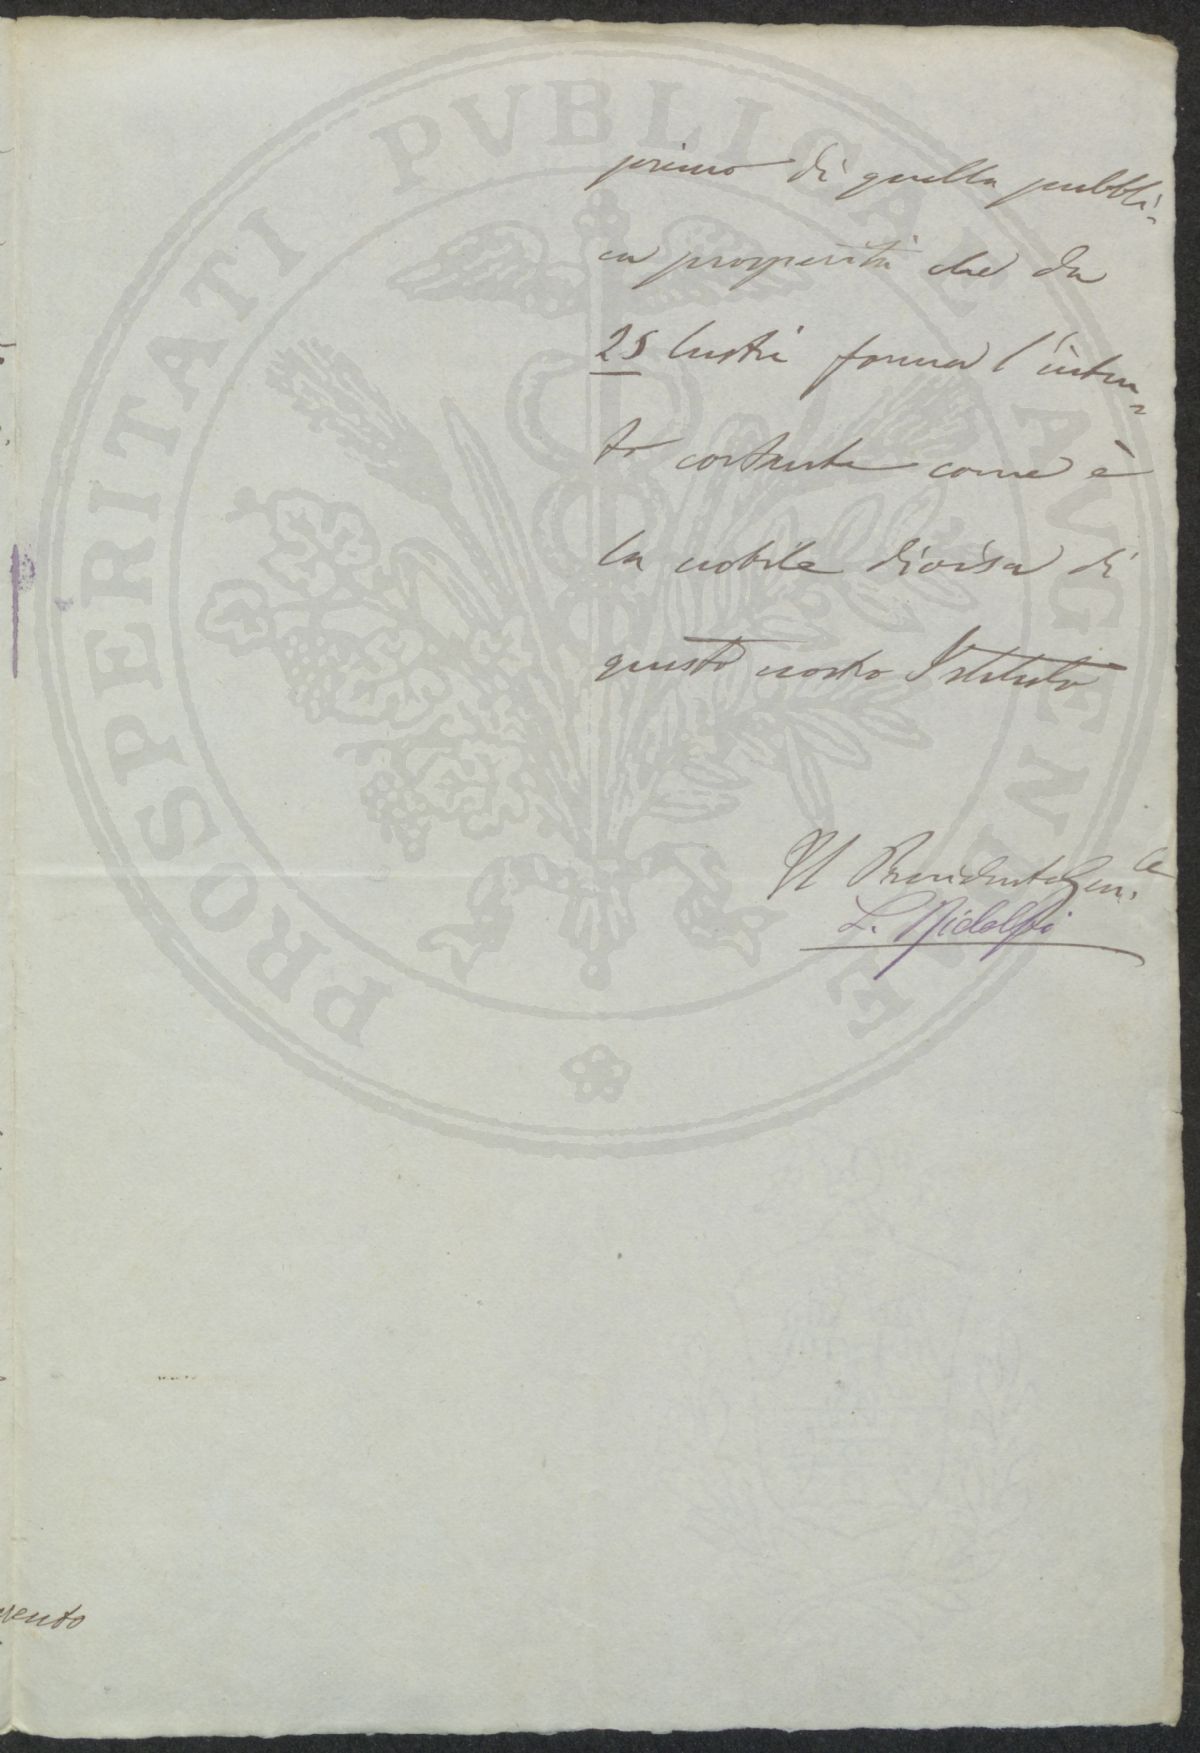 primo di quella pubbli-
ca prosperità che da
25 lustri forma l'inten-
to costante come è
la nobile divisa di
questo nostro Istituto
Il Presidente Gen.le
L. Ridolfi
vento
PROSPERITATI PVBLICAE AVGENDAE